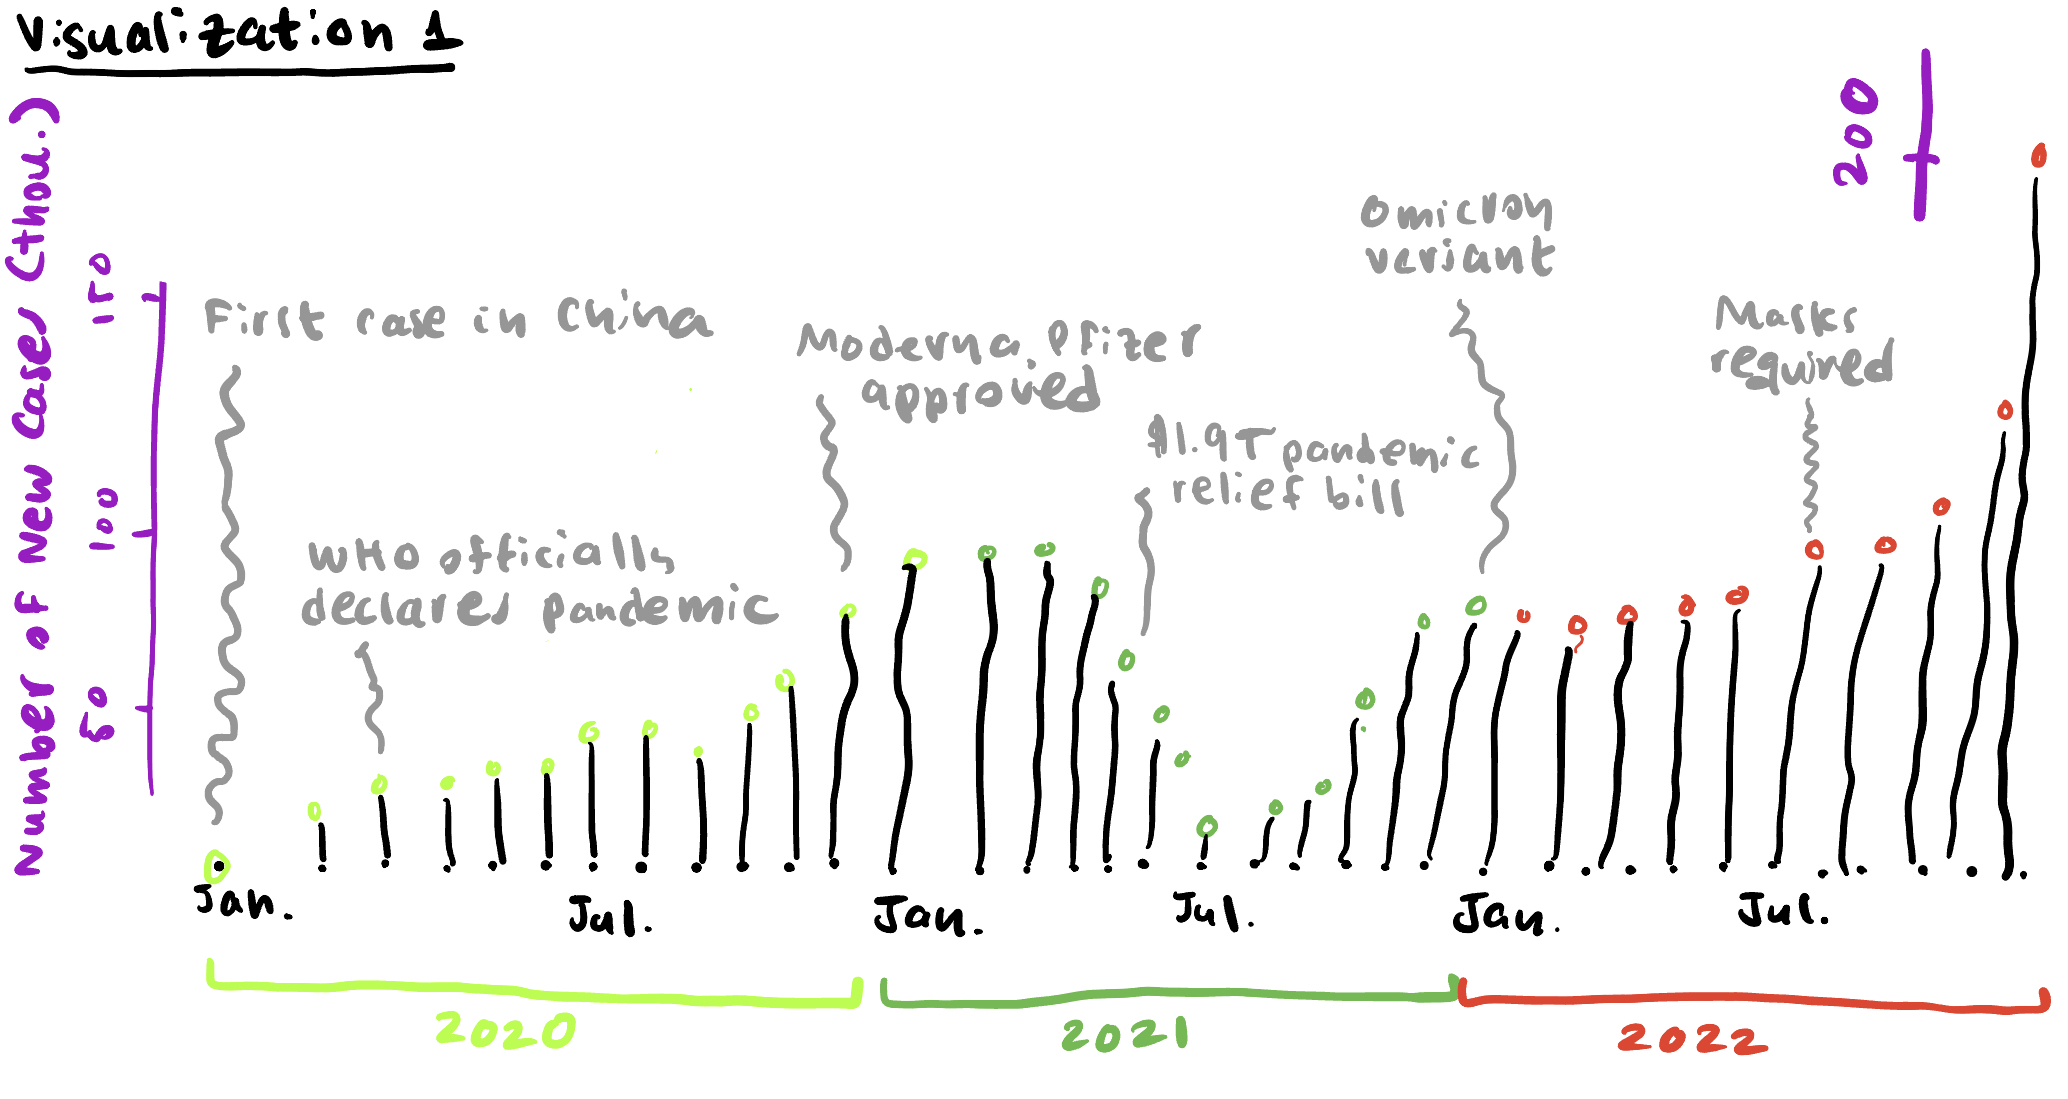 Visualization 1
Number of New Cases (thou.)
200
150
100
50
First case in China
WHO officially
declares pandemic
Moderna, Pfizer
approved
$1.9T pandemic
relief bill
Omicron
variant
Masks
required
Jan. Jul. Jan. Jul. Jan. Jul.
2020 2021 2022